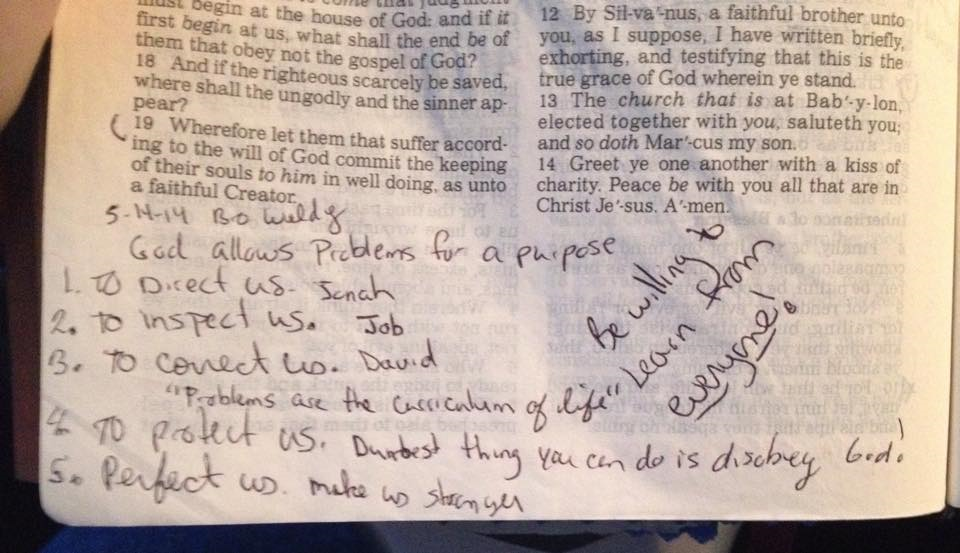 must begin at the house of God: and if it
first begin at us, what shall the end be of
them that obey not the gospel of God?
18 And if the righteous scarcely be saved,
where shall the ungodly and the sinner ap-
pear?
19 Wherefore let them that suffer accord-
ing to the will of God commit the keeping
of their souls to him in well doing, as unto
a faithful Creator.
12 By Sil-va´-nus, a faithful brother unto
you, as I suppose, I have written briefly,
exhorting, and testifying that this is the
true grace of God wherein ye stand.
13 The church that is at Bab´-y-lon,
elected together with you, saluteth you;
and so doth Mar´-cus my son.
14 Greet ye one another with a kiss of
charity. Peace be with you all that are in
Christ Je´-sus. A´-men.
5-14-14 Bo
God allows Problems for a purpose
1. TO Direct us. Jonah
2. TO inspect us. Job
3. TO correct us. David
"Problems are the curriculum of life"
4. TO protect us. Dumbest thing you can do is disobey God!
5. Perfect us. make us stronger
Be willing to
Learn from
everyone!